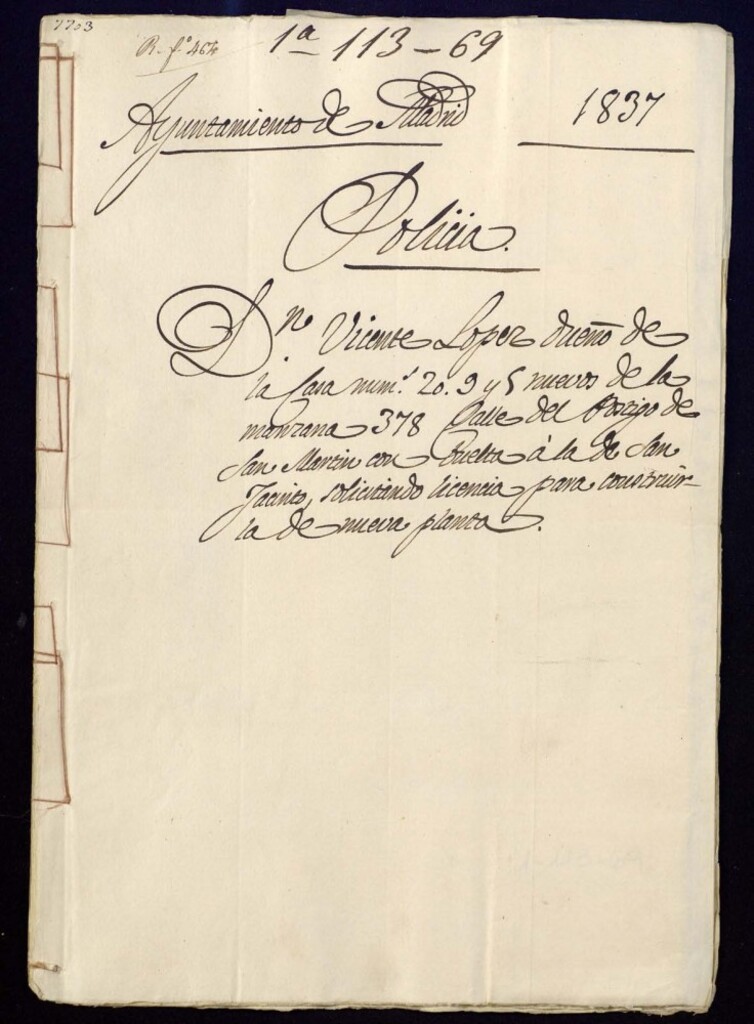 7703
R. fº 464
1ª 113-69
Ayuntamiento de Madrid 1837
Policia.
Dn. Vicente Lopez dueño de
la Casa num.s 20. 9 y 5 nuevos de la
manzana 378 Calle del Postigo de
San Martin con buelta á la de San
Jacinto, solicitando licencia para construir-
la de nueva planta.